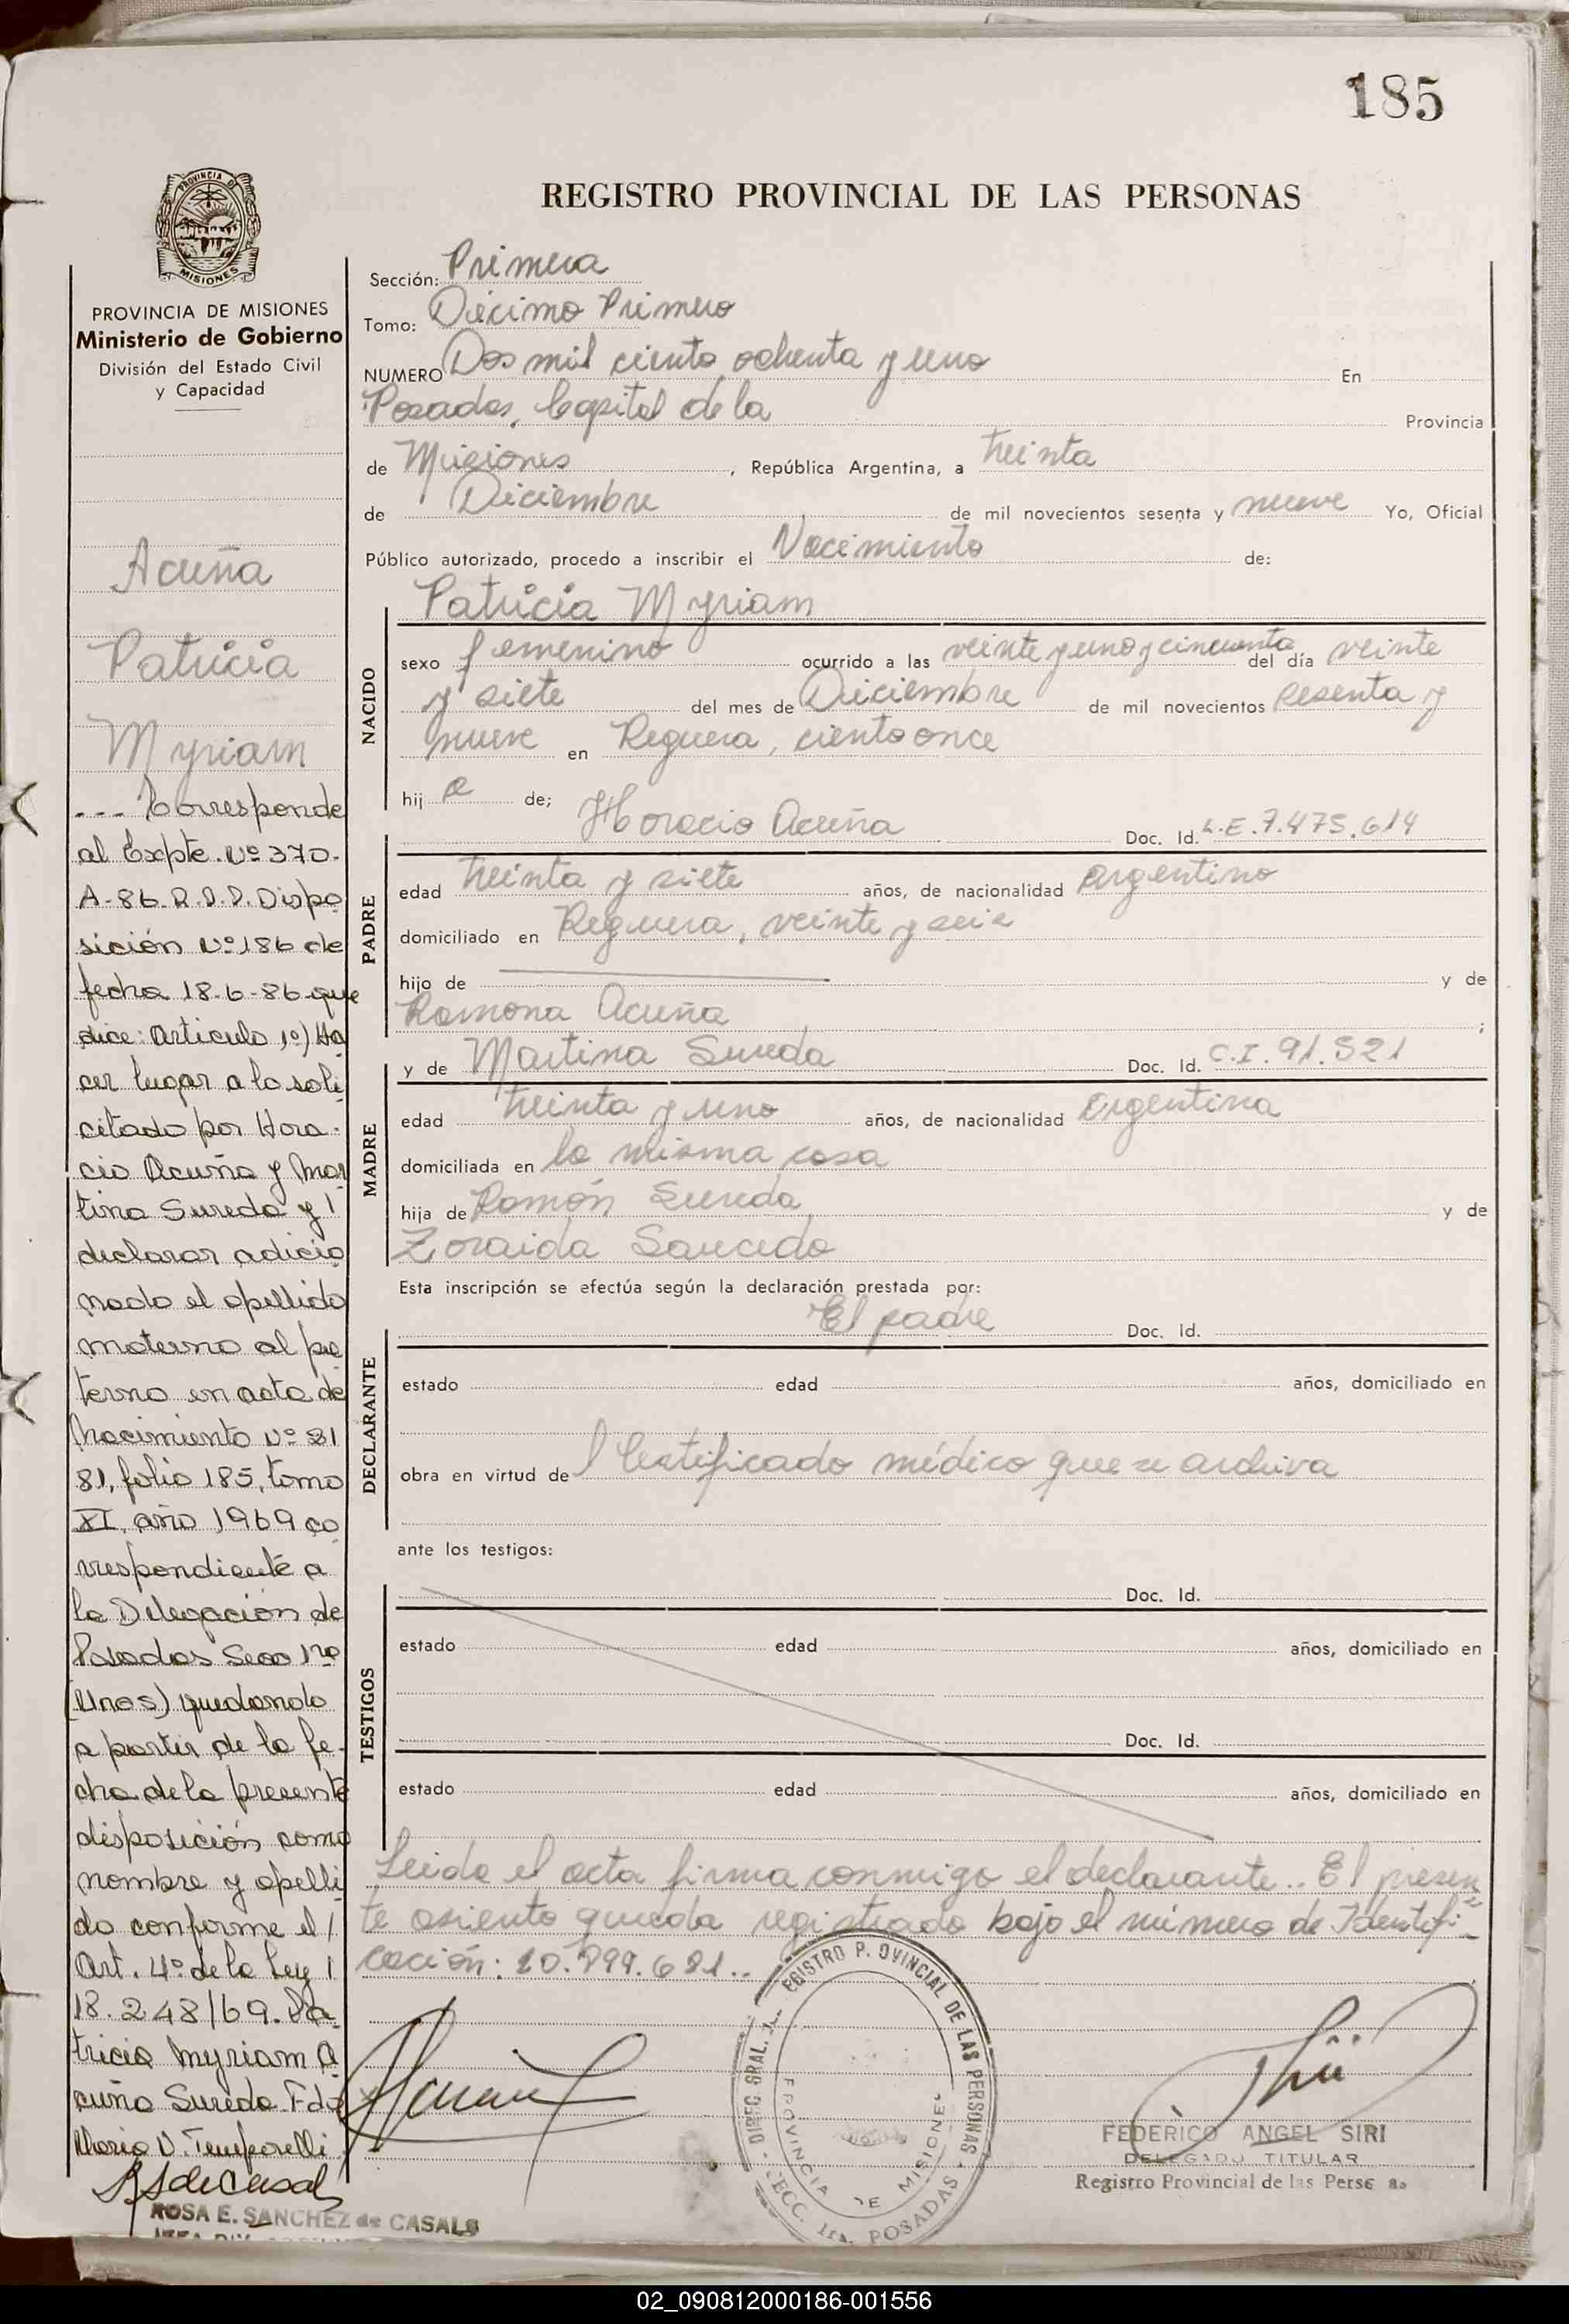 185
PROVINCIA DE
MISIONES
PROVINCIA DE MISIONES
Ministerio de Gobierno
División del Estado Civil
y Capacidad
Acuña
Patricia
Myriam
--- Corresponde
al Expte. Nº 370-
A-86. R.P.P. Dispo
sición Nº 186 de
fecha 18-6-86 que
dice: Articulo 1º) Ha
cer lugar a lo soli
citado por Hora-
cio Acuña y Mar
tina Sureda y /
declarar adicio
nado el apellido
materno al pa
terno en acta de
Nacimiento Nº 21
81, folio 185, tomo
XI, año 1969 co
rrespondiente a
la Delegación de
Posadas Secc 1ra
quedando
a partir de la fe-
cha de la presente
disposición como
nombre y apelli
do conforme el /
Art. 4º de la Ley /
18.248/69. Pa
tricia Myriam A
cuña Sureda. Fdo
Mario D. Temporelli
ROSA E. SANCHEZ de CASALS
REGISTRO PROVINCIAL DE LAS PERSONAS
Sección: Primera
Tomo: Décimo Primero
NUMERO Dos mil ciento ochenta y uno En
Posadas, Capital de la Provincia
de Misiones, República Argentina, a treinta
de Diciembre de mil novecientos sesenta y nueve Yo, Oficial
Público autorizado, procedo a inscribir el Nacimiento de:
Patricia Myriam
NACIDO
sexo femenino ocurrido a las veinte y uno y cincuenta del día veinte
y siete del mes de Diciembre de mil novecientos sesenta y
nueve en Reguera, ciento once
hij a de; Horacio Acuña Doc. Id. L.E. 7.475.614
PADRE
edad treinta y siete años, de nacionalidad argentino
domiciliado en Reguera, veinte y seis
hijo de y de
Ramona Acuña ;
y de Martina Sureda Doc. Id. C.I. 91.521
MADRE
edad treinta y uno años, de nacionalidad argentina
domiciliada en la misma casa
hija de Ramón Sureda y de
Zoraida Saucedo
Esta inscripción se efectúa según la declaración prestada por:
El padre Doc. Id.
DECLARANTE
estado edad años, domiciliado en
obra en virtud de l Certificado médico que se archiva
ante los testigos:
Doc. Id.
TESTIGOS
estado edad años, domiciliado en
Doc. Id.
estado edad años, domiciliado en
Leida el acta firma conmigo el declarante.. El presen
te asiento queda registrado bajo el número de Identifi-
cación:
PROVINCIAL DE LAS PERSONAS
PROVINCIA DE MISIONES
POSADAS
FEDERICO ANGEL SIRI
DELEGADO TITULAR
Registro Provincial de las
02_090812000186-001556